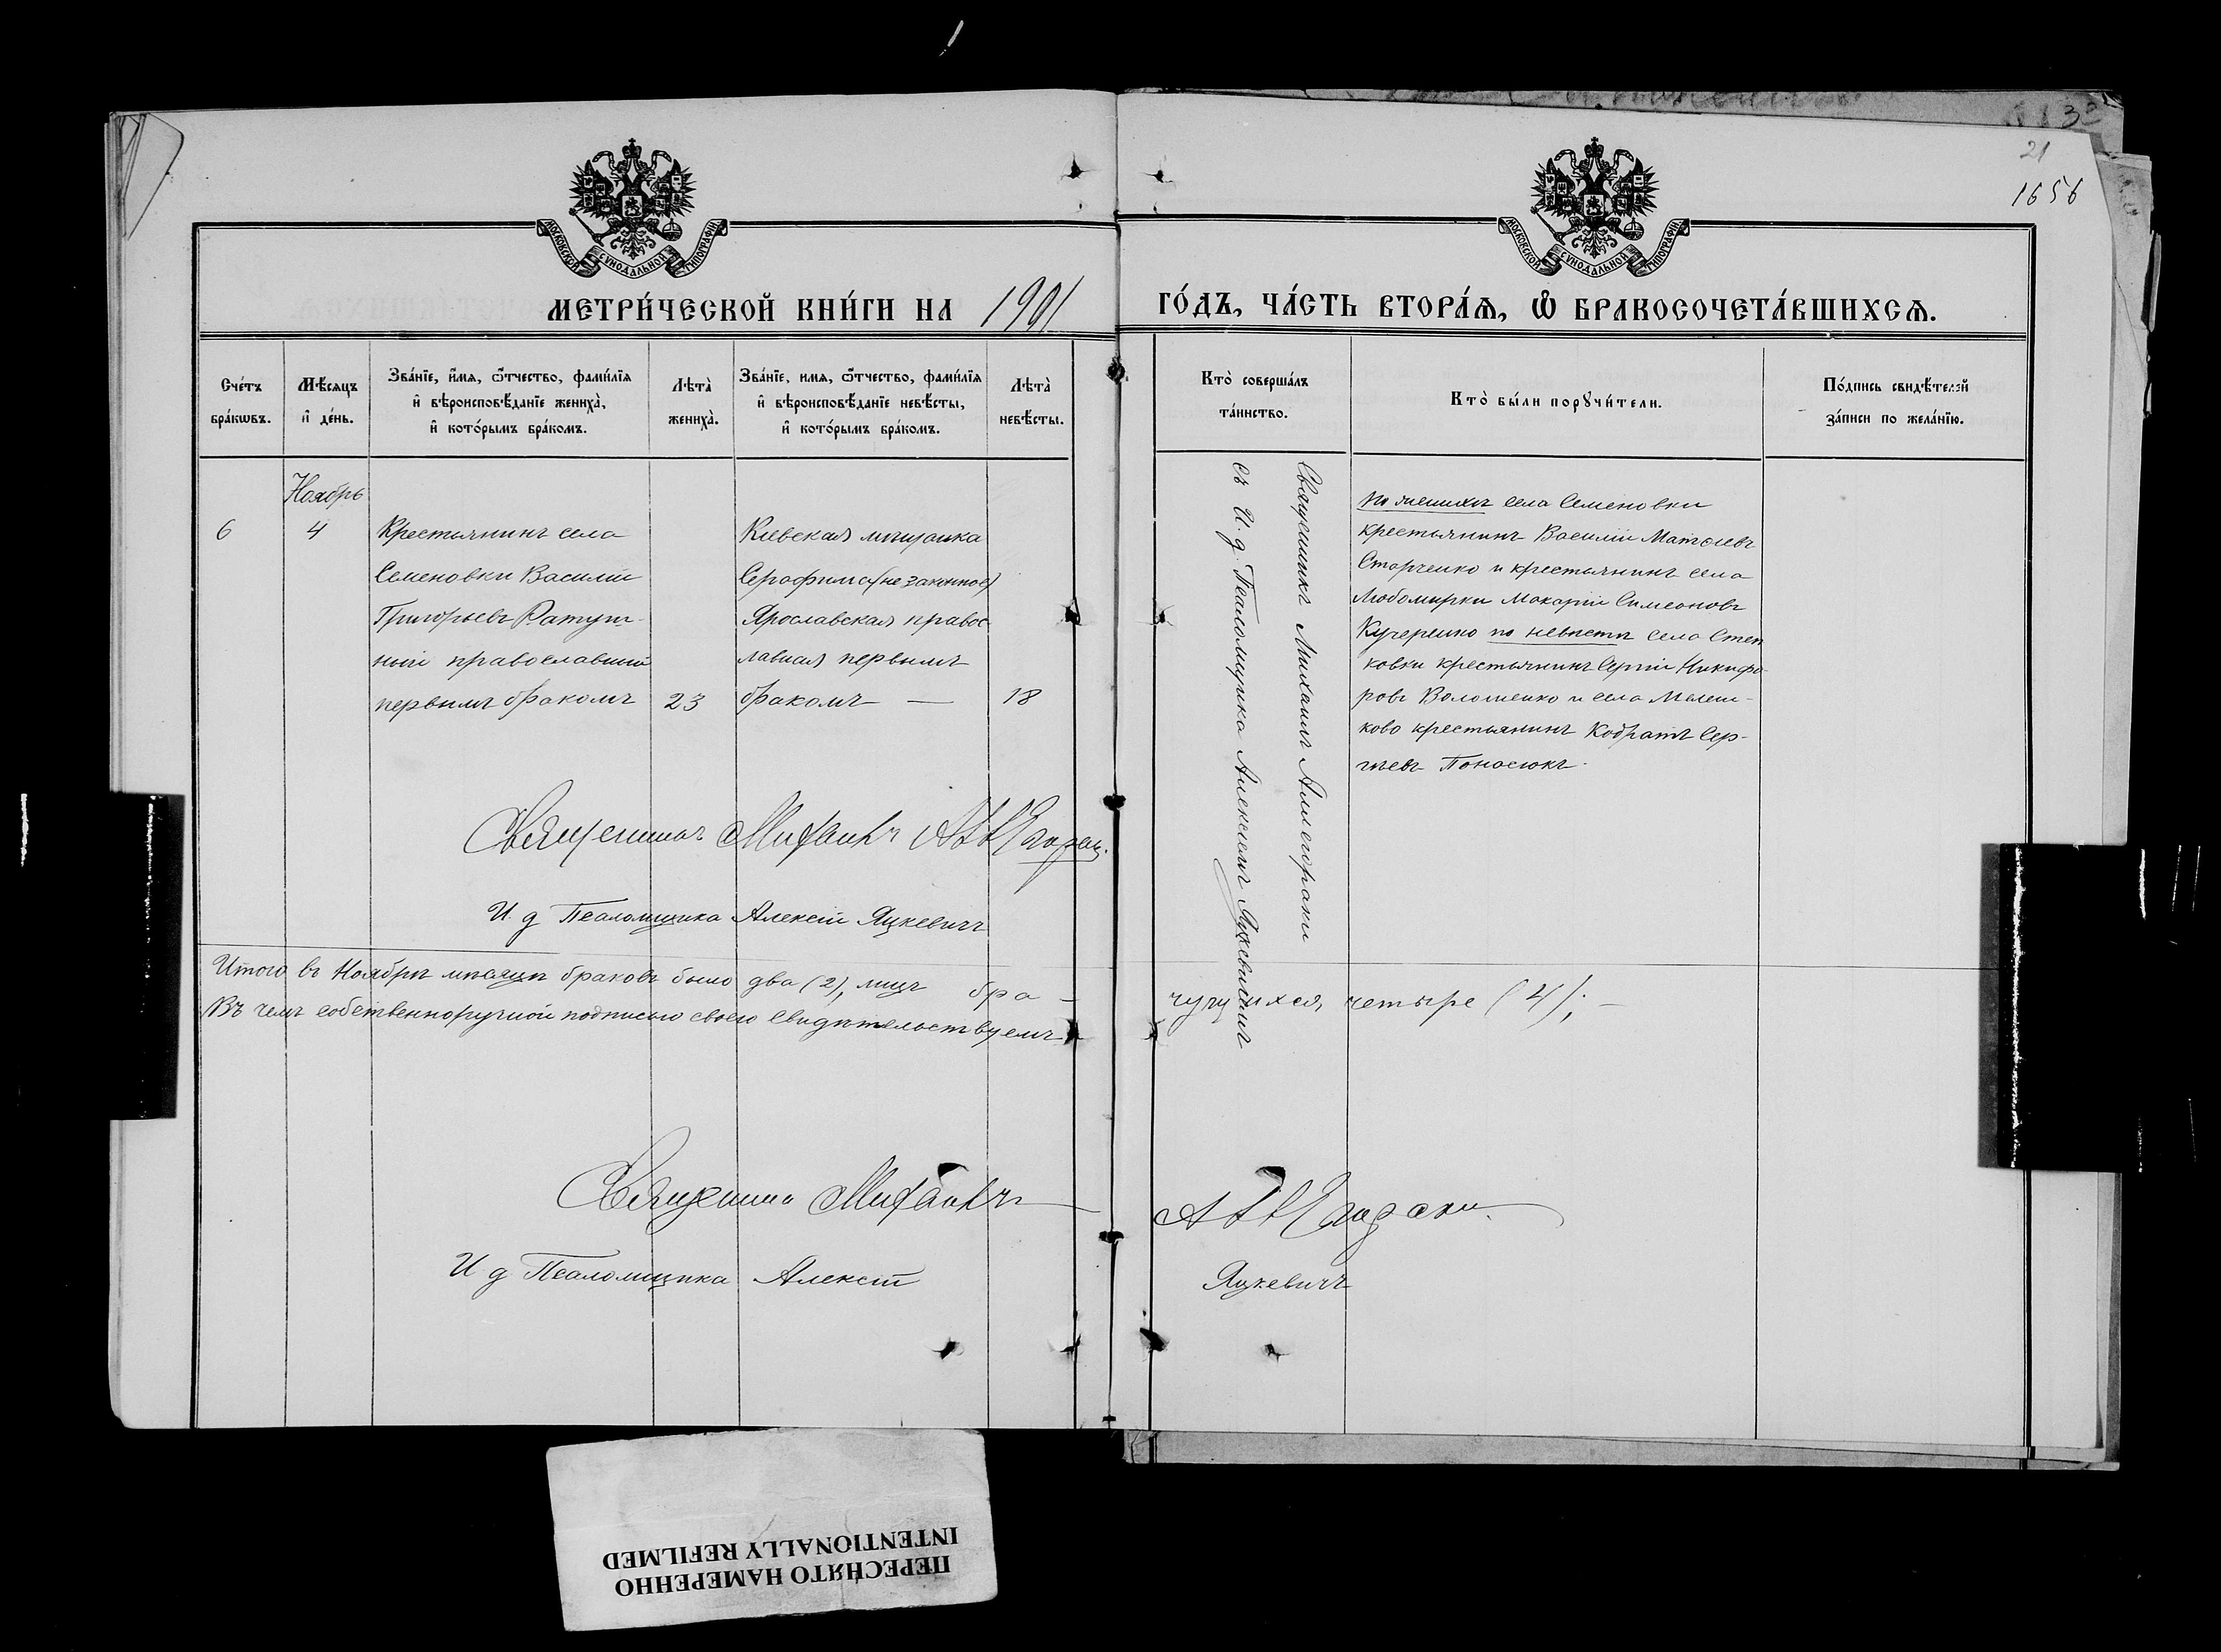 21
1656
МОСКОВСКОЙ СУНОДАЛЬНОЙ ТИПОГРАФІИ
МОСКОВСКОЙ СУНОДАЛЬНОЙ ТИПОГРАФІИ
МЕТРИ́ЧЕСКОЙ КНИ́ГИ НА 1901 ГО́ДЪ, ЧА́СТЬ ВТОРА́Я, Ѽ БРАКОСОЧЕТА́ВШИХСЯ.
Сче́тъ бра́кѡвъ.
Мѣ́сяцъ и҆ де́нь.
Зва́нїе, и҆́мя, ѻ҆́тчество, фамилїя и҆ вѣроисповѣ́данїе жениха̀, и҆ кото́рымъ бра́комъ.
Лѣта̀ жениха̀.
Зва́нїе, имя, ѻ҆́тчество, фами́лїя и҆ вѣроисповѣ́данїе невѣ́сты, и҆ кото́рымъ бра́комъ.
Лѣта̀ невѣ́сты.
Кто̀ соверша́лъ та́инство.
Кто̀ бы́ли порꙋчи́тели.
По́дпись свидѣ́телей за́писи по жела́нїю.
Ноябрь
6
4
Крестьянинъ села
Семеновки Василій
Григорьевъ Ратуш-
ный православный
первымъ бракомъ
23
Кіевская мѣщанка
Серафима (незаконноо)
Ярославская правос
лавная первымъ
бракомъ —
18
Священникъ Михаилъ Аллегораки
съ И. д. Псаломщика Алексіемъ Яцкевичемъ
по женихѣ села Семеновки
крестьянинъ Василій Матѳіевъ
Старченко и крестьянинъ села
Любомирки Макарій Симеоновъ
Кучеренко по невѣстѣ села Степ
ковки крестьянинъ Сергій Никифо
ровъ Волошенко и села Мелеш-
ково крестьянинъ Кодратъ Сер-
гѣевъ Понасюкъ.
Священникъ Михаилъ
И д Псаломщика Алексій Яцкевичъ
Итого въ Ноябрѣ мѣсяцѣ браковъ было два (2), лицъ бра-
чущихся, четыре (4); —
Въ чемъ собственноручной подписью своею свидѣтельствуемъ
Священникъ Михаилъ Аллегораки.
И д Псаломщика Алексій Яцкевичъ
ПЕРЕСНЯТО НАМЕРЕННО
INTENTIONALLY REFILMED